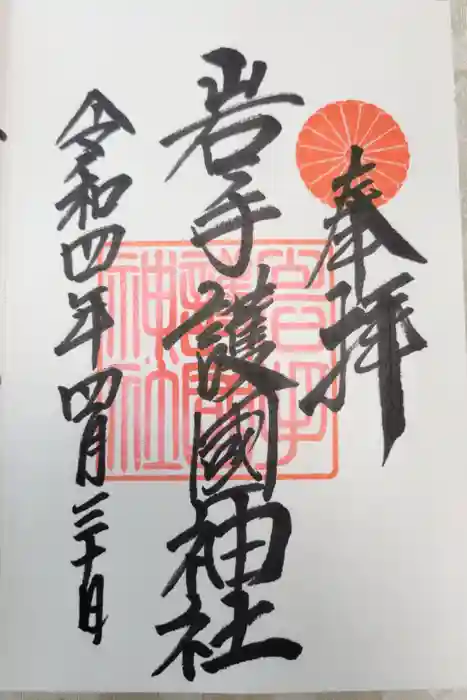 奉拝
岩手護國神社
岩手護國神社
令和四年四月三十日